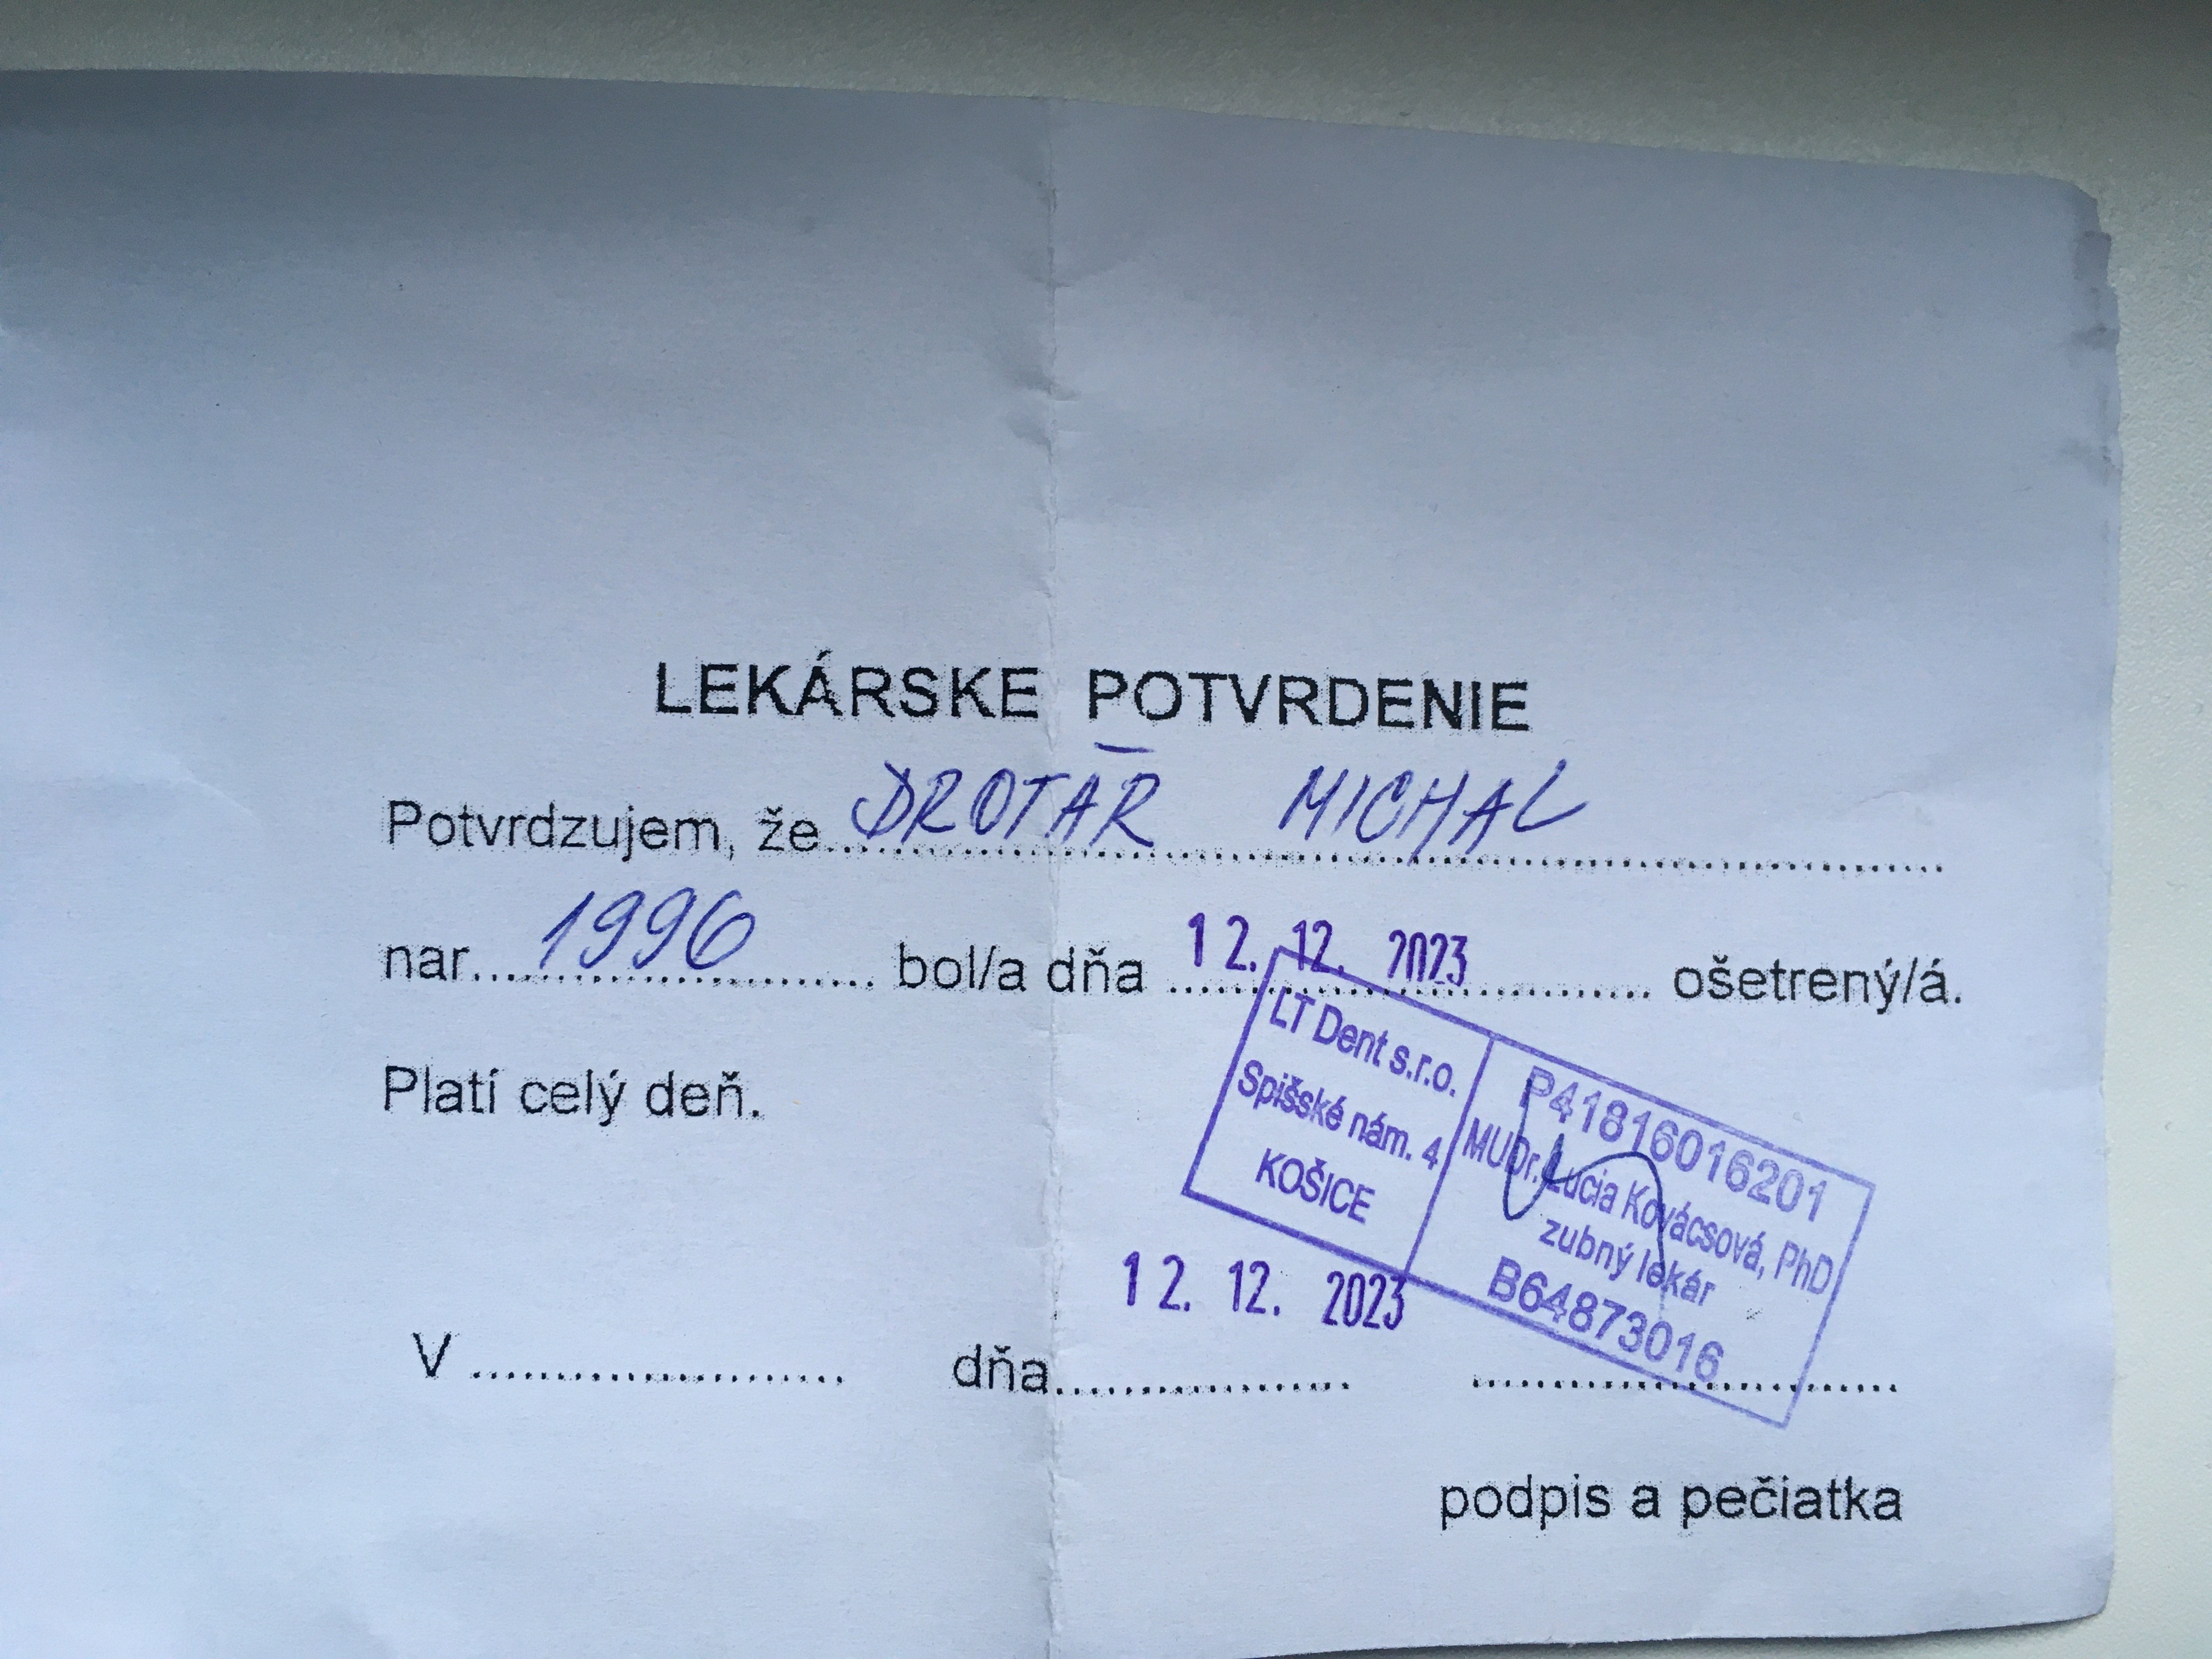 LEKÁRSKE POTVRDENIE
Potvrdzujem, že DROTÁR MICHAL
nar. 1996 bol/a dňa 12. 12. 2023 ošetrený/á.
Platí celý deň.
LT Dent s.r.o.
Spišské nám. 4
KOŠICE
P41816016201
MUDr. Lucia Kovácsová, PhD
zubný lekár
B64873016
12. 12. 2023
V .................... dňa.................... ....................
podpis a pečiatka